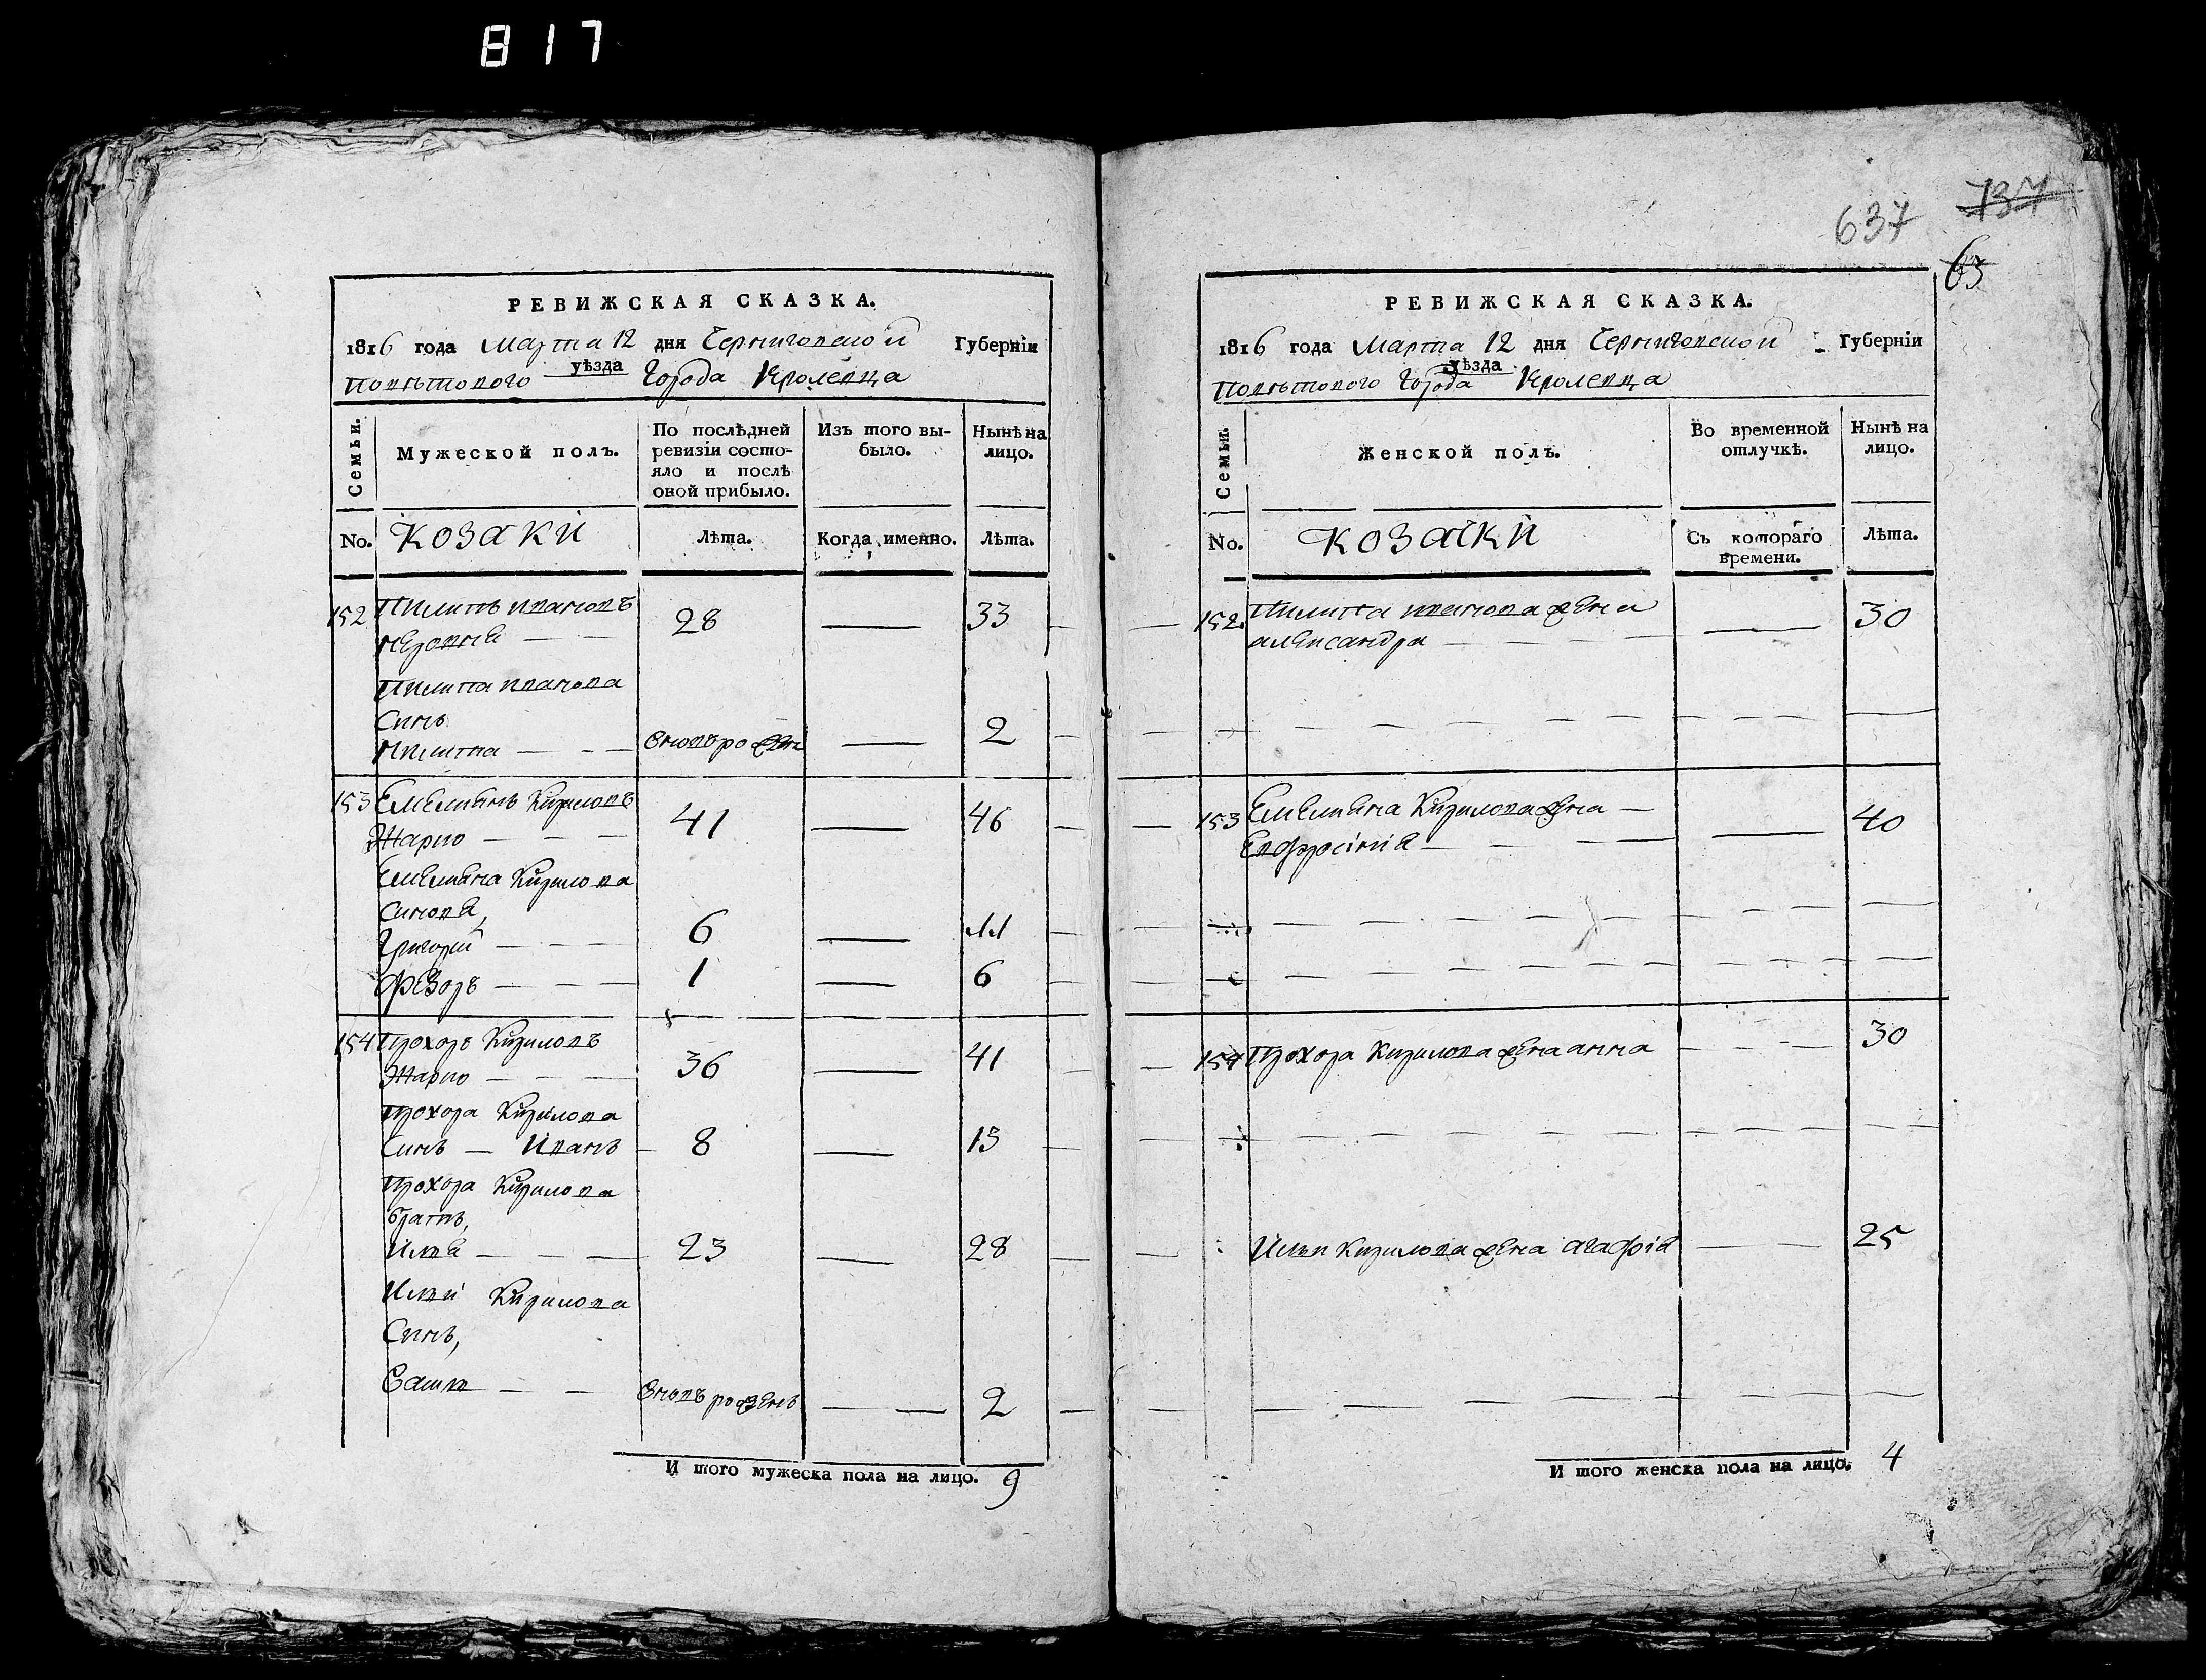 817
637
737
63
РЕВИЖСКАЯ СКАЗКА.
1816 года Марта 12 дня Черниговской Губерніи
Повѣтового уѣзда Города Кролевца
Семьи.
Мужеской полъ.
По послѣдней
ревизіи состо-
яло и послѣ
оной прибыло.
Изъ того вы-
было.
Нынѣ на
лицо.
No.
козаки
Лѣта.
Когда именно.
Лѣта.
152 Пилипъ ивановъ 28 33
Пилипа иванова
Синъ
Никита вновъ рожденъ 2
153 Емелианъ Кириловъ 41 46
Жарко
Емелиана Кирилова
Синовя,
Григорій 6 11
Федоръ 1 6
154 Прохоръ Кириловъ
Жарко 36 41
Прохора Кирилова
Синъ Иванъ 8 13
Прохора Кирилова
братъ,
Илья 23 28
Ильи Кирилова
Синъ,
вновъ рожденъ 2
И того мужеска пола на лицо. 9
РЕВИЖСКАЯ СКАЗКА.
1816 года Марта 12 дня Черниговской Губерніи
Повѣтового уѣзда Города Кролевца
Семьи.
Женской полъ.
Во временной
отлучкѣ.
Нынѣ на
лицо.
No.
козачки
Съ котораго
времени.
Лѣта.
152. Пилипа иванова жена 30
александра
153 Емелиана Кирилова жена 40
Евфросініа
154 Прохора Кирилова жена анна 30
Ильи Кирилова жена агафіа 25
И того женска пола на лицо. 4